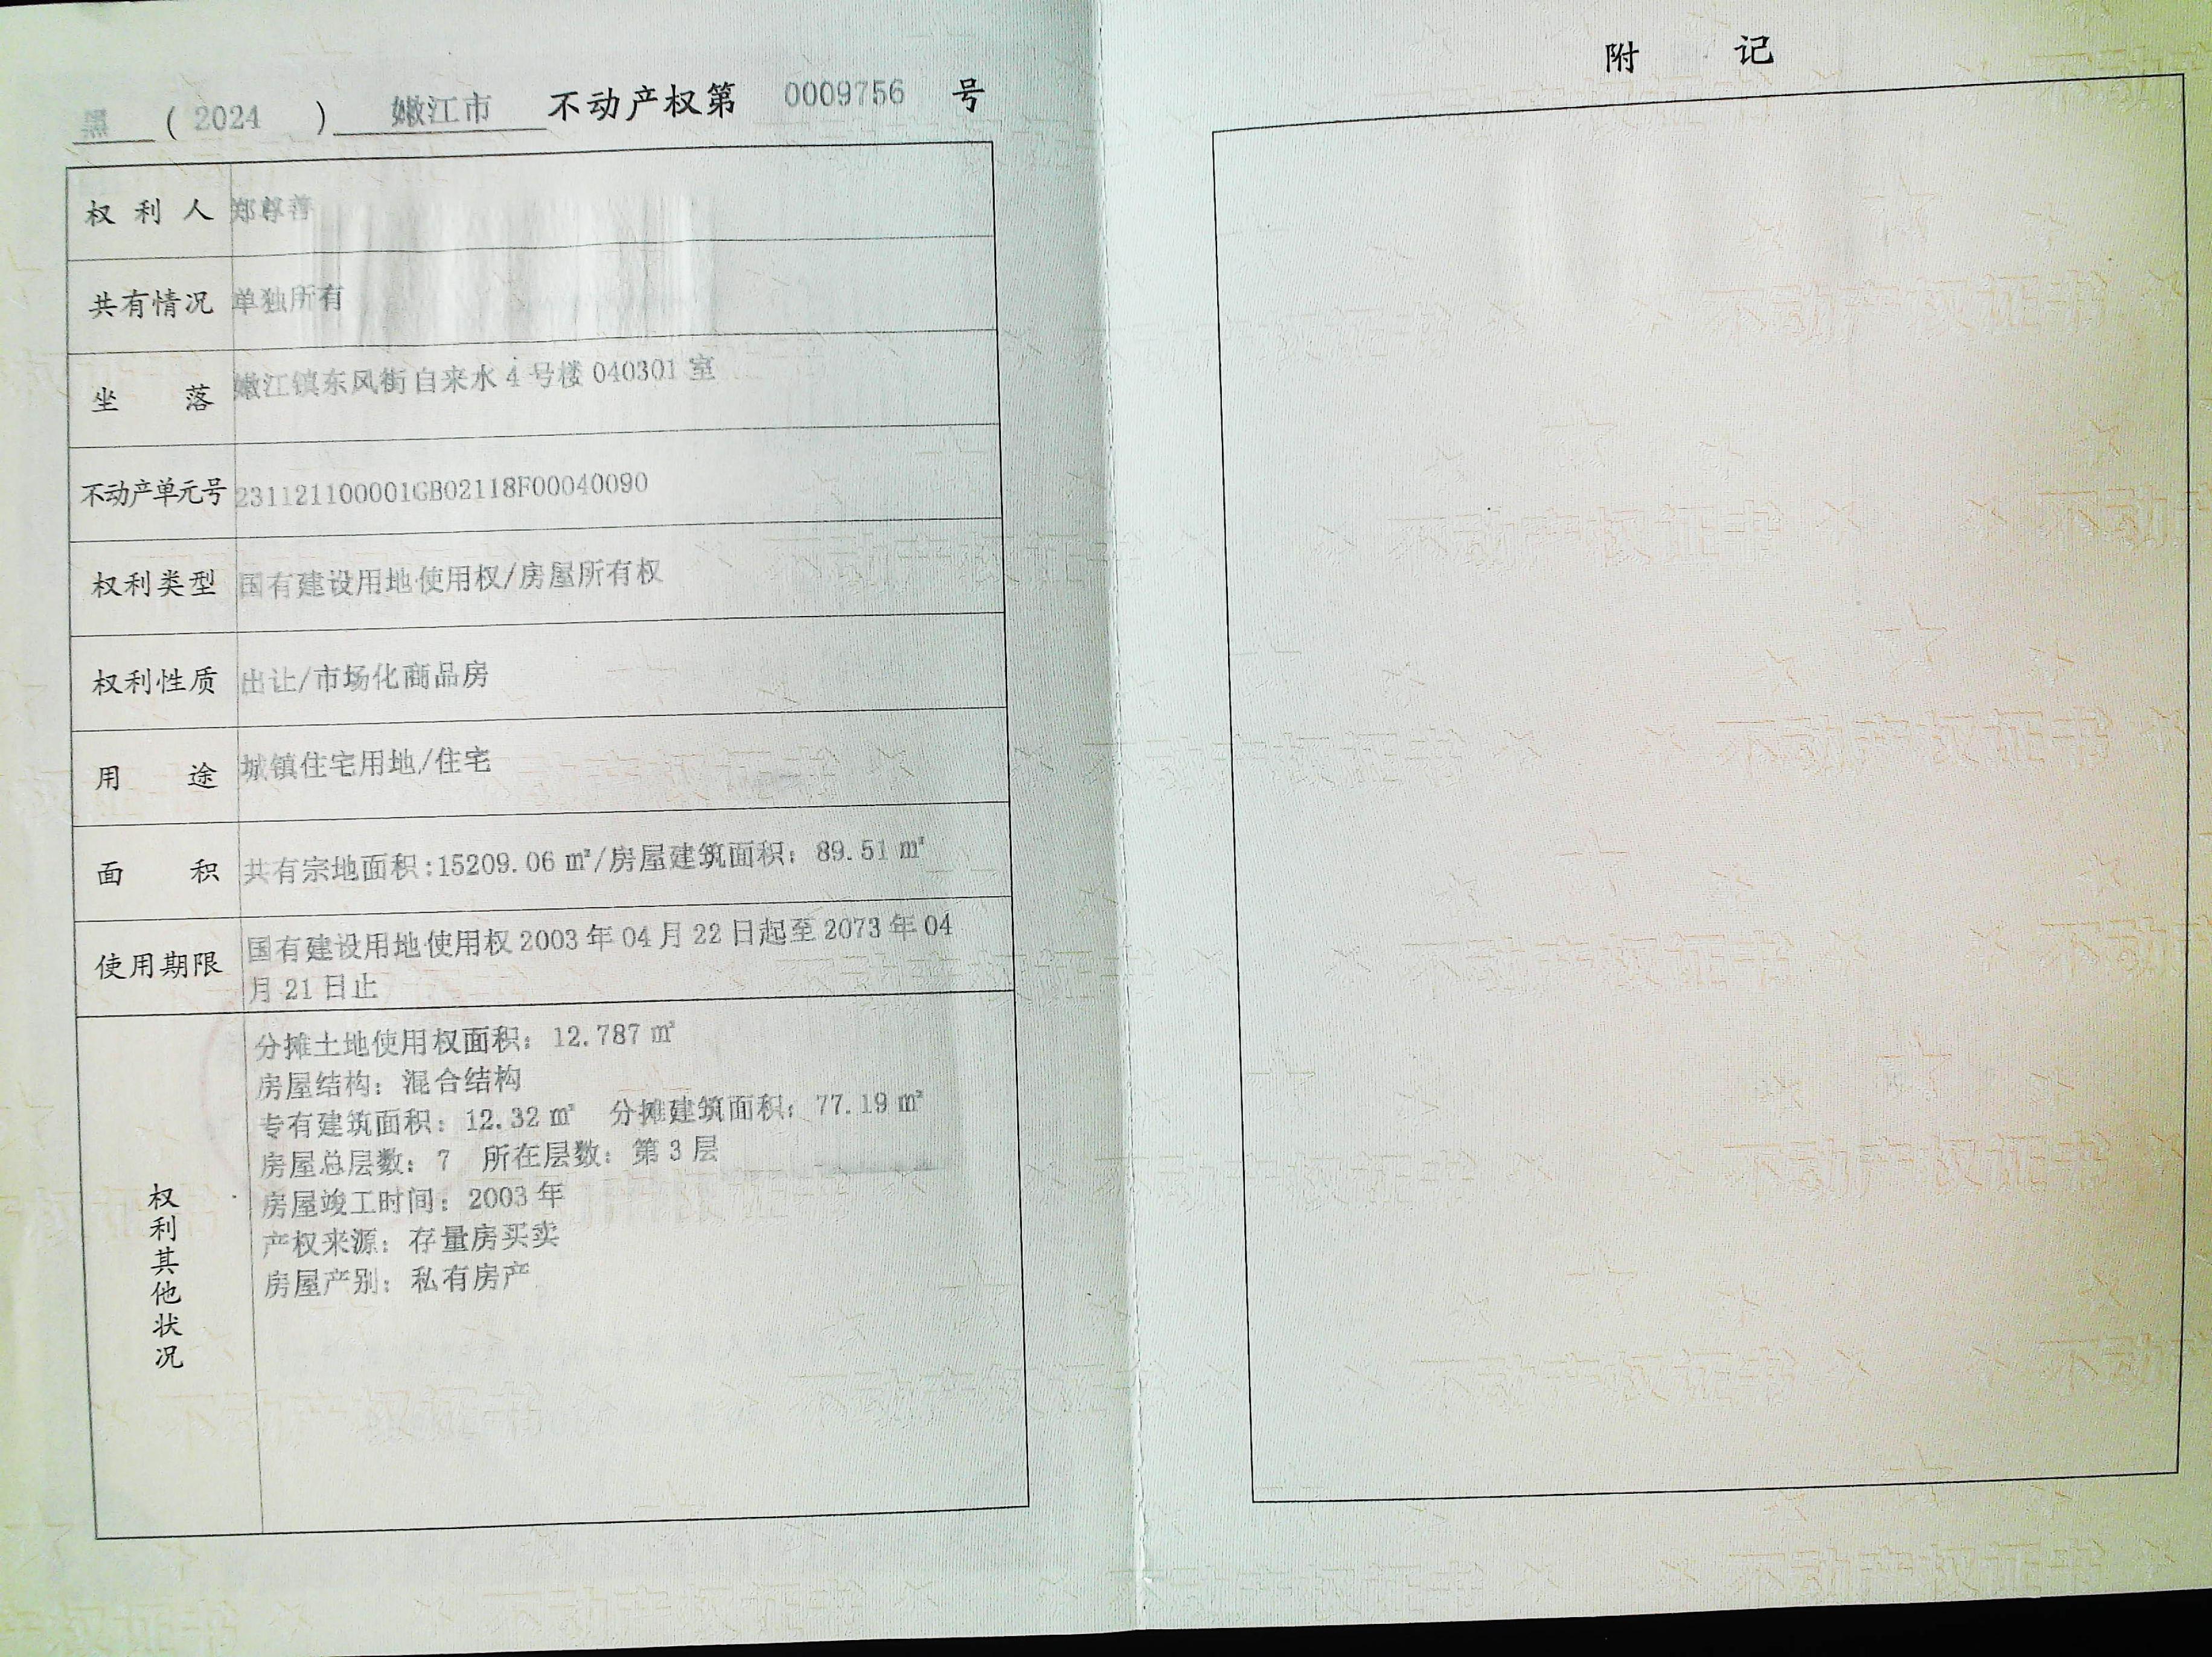 黑 ( 2024 ) 嫩江市 不动产权第 0009756 号
权利人 郑尊善
共有情况 单独所有
坐落 嫩江镇东风街自来水4号楼040301室
不动产单元号 231121100001GB02118F00040090
权利类型 国有建设用地使用权/房屋所有权
权利性质 出让/市场化商品房
用途 城镇住宅用地/住宅
面积 共有宗地面积:15209.06㎡/房屋建筑面积：89.51㎡
使用期限 国有建设用地使用权2003年04月22日起至2073年04
月21日止
权利其他状况
分摊土地使用权面积：12.787㎡
房屋结构：混合结构
专有建筑面积：12.32㎡ 分摊建筑面积：77.19㎡
房屋总层数：7 所在层数：第3层
房屋竣工时间：2003年
产权来源：存量房买卖
房屋产别：私有房产
附记